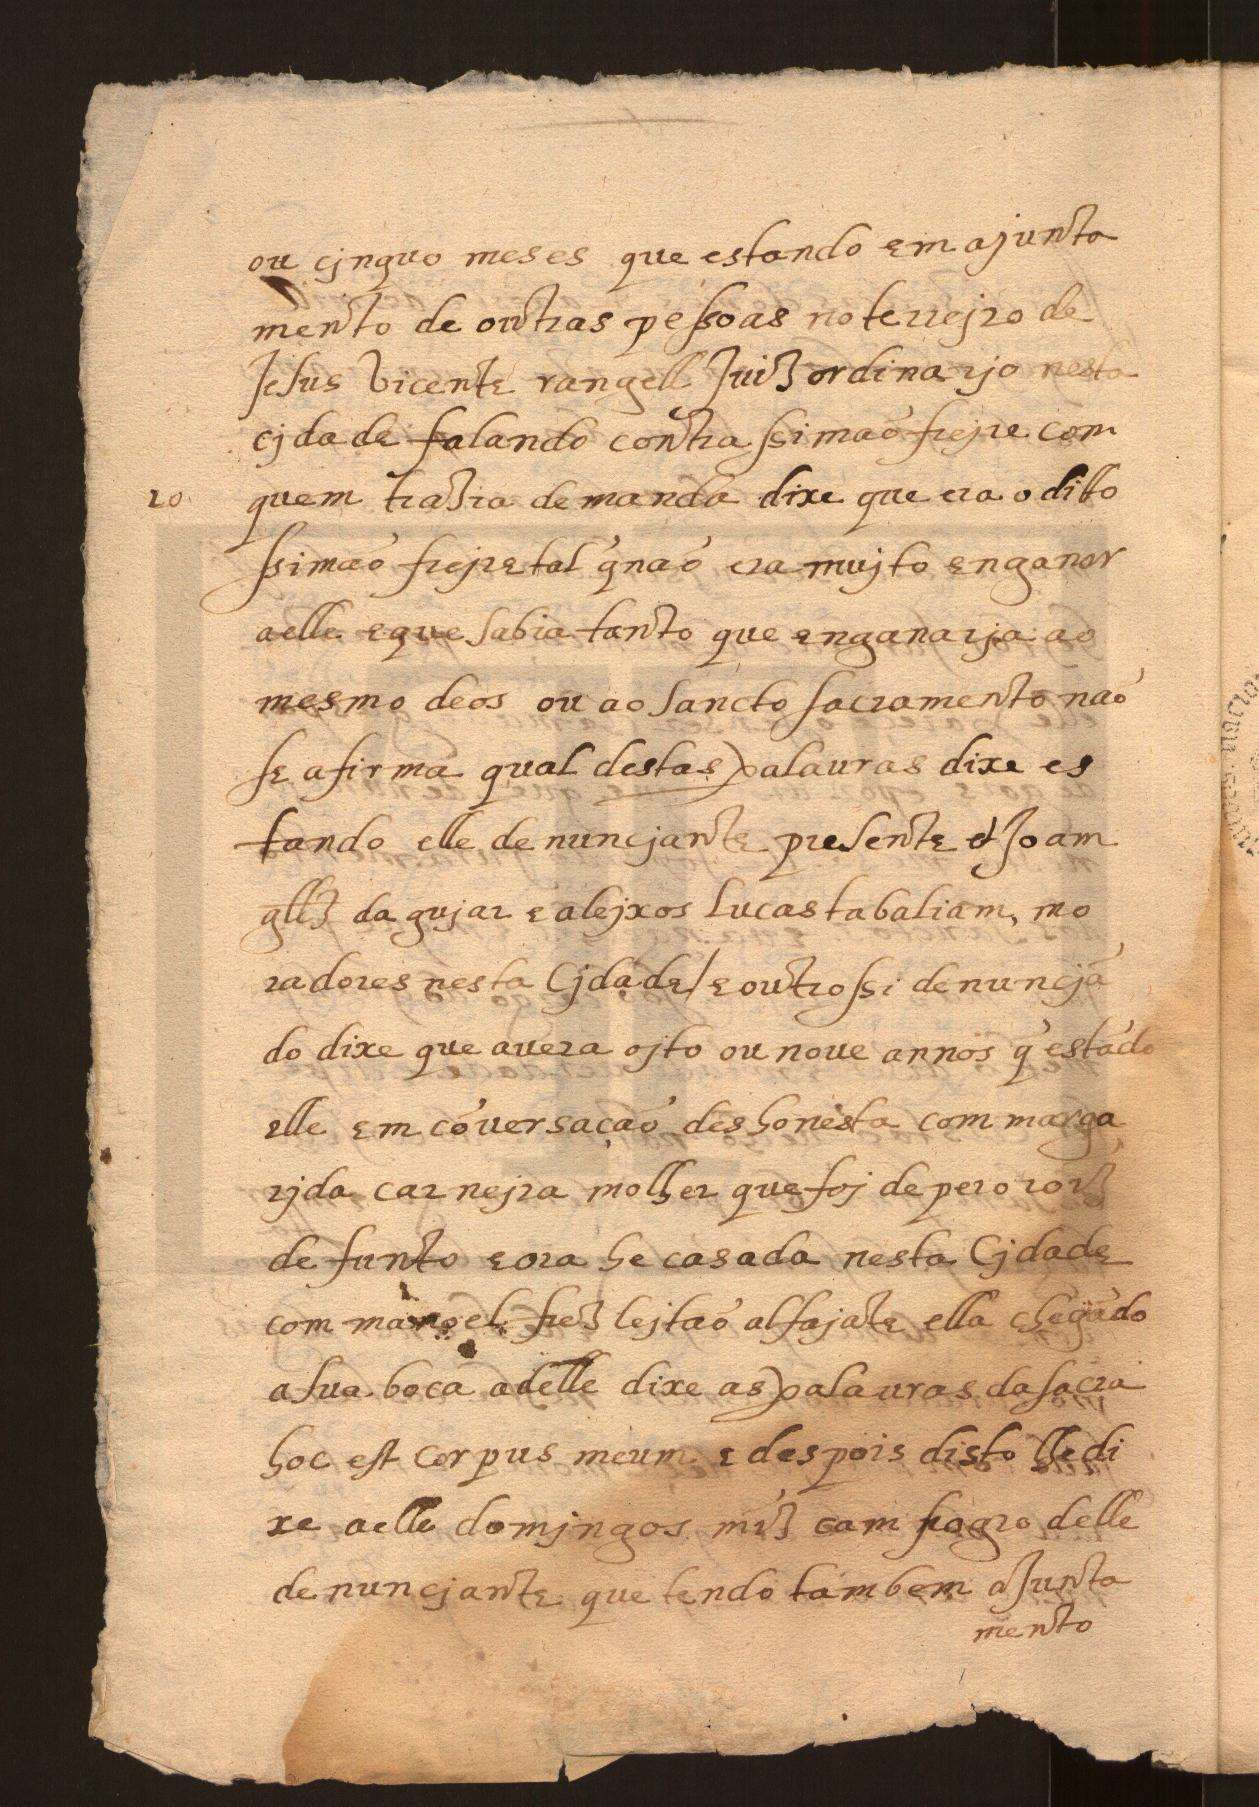 ou cjnquo meses que estando em ajunta
mento de outras pessoas no terrejro de
Jesus Vicente rangell Juiz ordinarjo nesta
cjdade falando contra ssimaõ frejre com
20 quem trazia demanda dixe que era o ditto
ssimaõ frejre tal q̃ naõ era mujto enganar
aelle e que sabia tanto que enganarja ao
mesmo deos ou ao sancto sacramento naõ
se afirma qual destas palauras dixe es
tando elle denuncjante presente et Joam
gllz dagujar e alejxos Lucas tabaliam, mo
radores nesta Cjdade / e outrossi denuncjã
do dixe que auera ojto ou noue annos q̃ estãdo
elle em cõuersaçaõ deshonesta com marga
rjda carnejra molher que foj de pero roiz
defunto e ora he casada nesta Cjdade
com manoel frez lejtaõ alfajate ella chegãdo
a sua boca a delle dixe as palauras da sacra
hoc est corpus meum e despois disto lhe di
xe aelle domjngos miz cam sogro delle
denuncjante que tendo tambem aJunta
mento